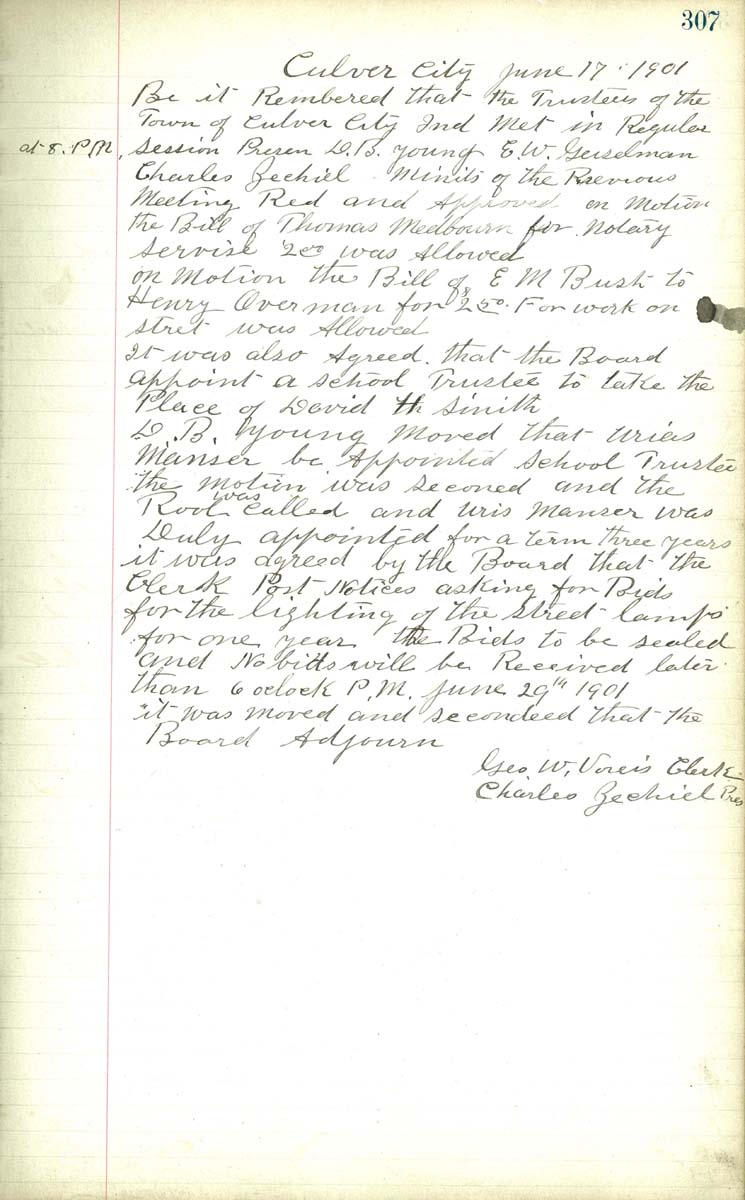 307
Culver City June 17. 1901
Be it Rembered that the Trustees of the
Town of Culver City Ind Met in Reguler
at 8. P.M. Session Presen D.B. Young E.W. Geiselman
Charles Zechiel Minits of the Previous
Meeting Red and Approved on Motion
the Bill of Thomas Medbourn for Notary
Servise $2.00 was Allowed
on Motion the Bill of E M Bush to
Henry Overman for $2.50. For work on
stret was Allowed
It was also Agreed. that the Board
appoint a School Trustee to take the
Place of David Smith
D.B. Young Moved that Urias
Manser be Appointed School Trustee
the motion was seconed and the
Rool was Called and Uris Manser was
Duly appointed for a term three years
it was agreed by the Board that the
Clerk Post Notices asking for Bids
for the lighting of the street lamps
for one year the Bids to be sealed
and No bitts will be Received later
than 6 oclock P.M. June 29th 1901
it was moved and secondeed that the
Board Adjourn
Geo W. Voreis Clerk
Charles Zechiel Pres